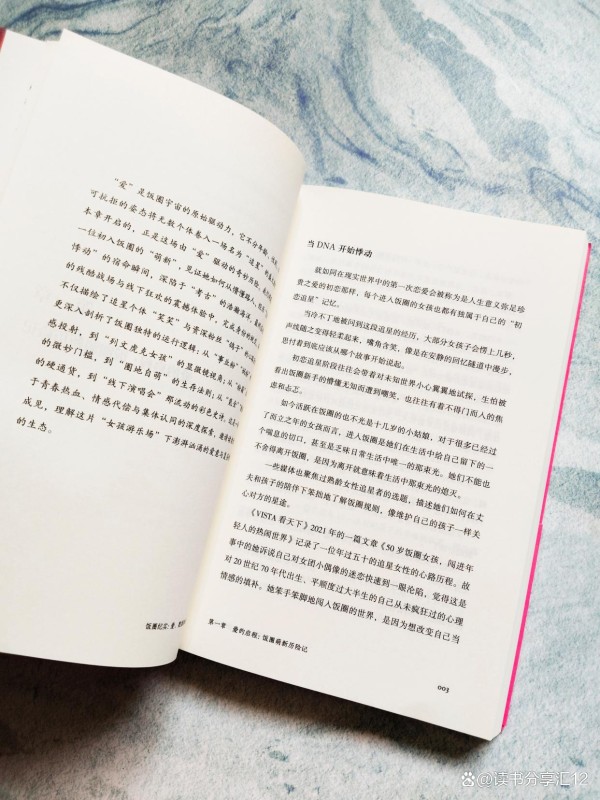 “爱”是饭圈宇宙的原始驱动力，它不分年龄、
可抗拒的姿态将无数个体卷入一场名为“追星”的
本章开启的，正是这场由“爱”驱动的奇妙
一位初入饭圈的“萌新”，见证她如何从懵懂路人，
悸动”的宿命瞬间，深陷于“考古”的浩瀚
的残酷战场与线下狂欢的震撼体验中，完成
不仅描绘了追星个体“笑笑”与资深粉丝“鸽子”的
更深入剖析了饭圈独特的运行逻辑：从“事业粉”
感投射，到“列文虎克女孩”的显微镜视角；从
的微妙门槛，到“圈地自萌”的生存法则；从
的硬通货，到“线下演唱会”那流动的彩色光海，
于青春热血、情感代偿与集体认同的深度探索，
成见，理解这片“女孩游乐场”下澎湃汹涌的爱意与
的生态。
饭圈纪实：爱、
当 DNA 开始悸动
就如同在现实世界中的第一次恋爱会被称为是人生意义弥足珍
贵之爱的初恋那样，每个进入饭圈的女孩也都有独属于自己的“初
恋追星”记忆。
当冷不丁地被问到这段追星的经历，大部分女孩子会愣上几秒，
声线随之变得轻柔起来，嘴角含笑，像是在安静的回忆隧道中漫步，
思忖着到底应该从哪个故事开始说起。
初恋追星阶段往往会带着对未知世界小心翼翼地试探，生怕被
看出饭圈新手的懵懂无知而遭到嘲笑，也往往有着不得门而入的焦
虑和忐忑。
如今活跃在饭圈的也不光是十几岁的小姑娘，对于很多已经过
了而立之年的女孩而言，进入饭圈是她们在生活中给自己留下的一
个喘息的切口，甚至是乏味日常生活中唯一的那束光。她们不能也
不舍得离开饭圈，是因为离开就意味着生活中那束光的熄灭。
一些媒体也聚焦过熟龄女性追星者的选题，描述她们如何在丈
夫和孩子的陪伴下笨拙地了解饭圈规则，像维护自己的孩子一样关
心对方的星途。
《VISTA 看天下》2021 年的一篇文章《50 岁饭圈女孩，闯进年
轻人的热闹世界》记录了一位年过五十的追星女性的心路历程。故
事中的她诉说自己对女团小偶像的迷恋快速到一眼沦陷，觉得这是
对 20 世纪 70 年代出生、平顺度过大半生的自己从未疯狂过的心理
情感的填补。她笨手笨脚地闯入饭圈的世界，是因为想改变自己当
第一章 爱的启程：饭圈萌新历险记
003
读书分享汇12